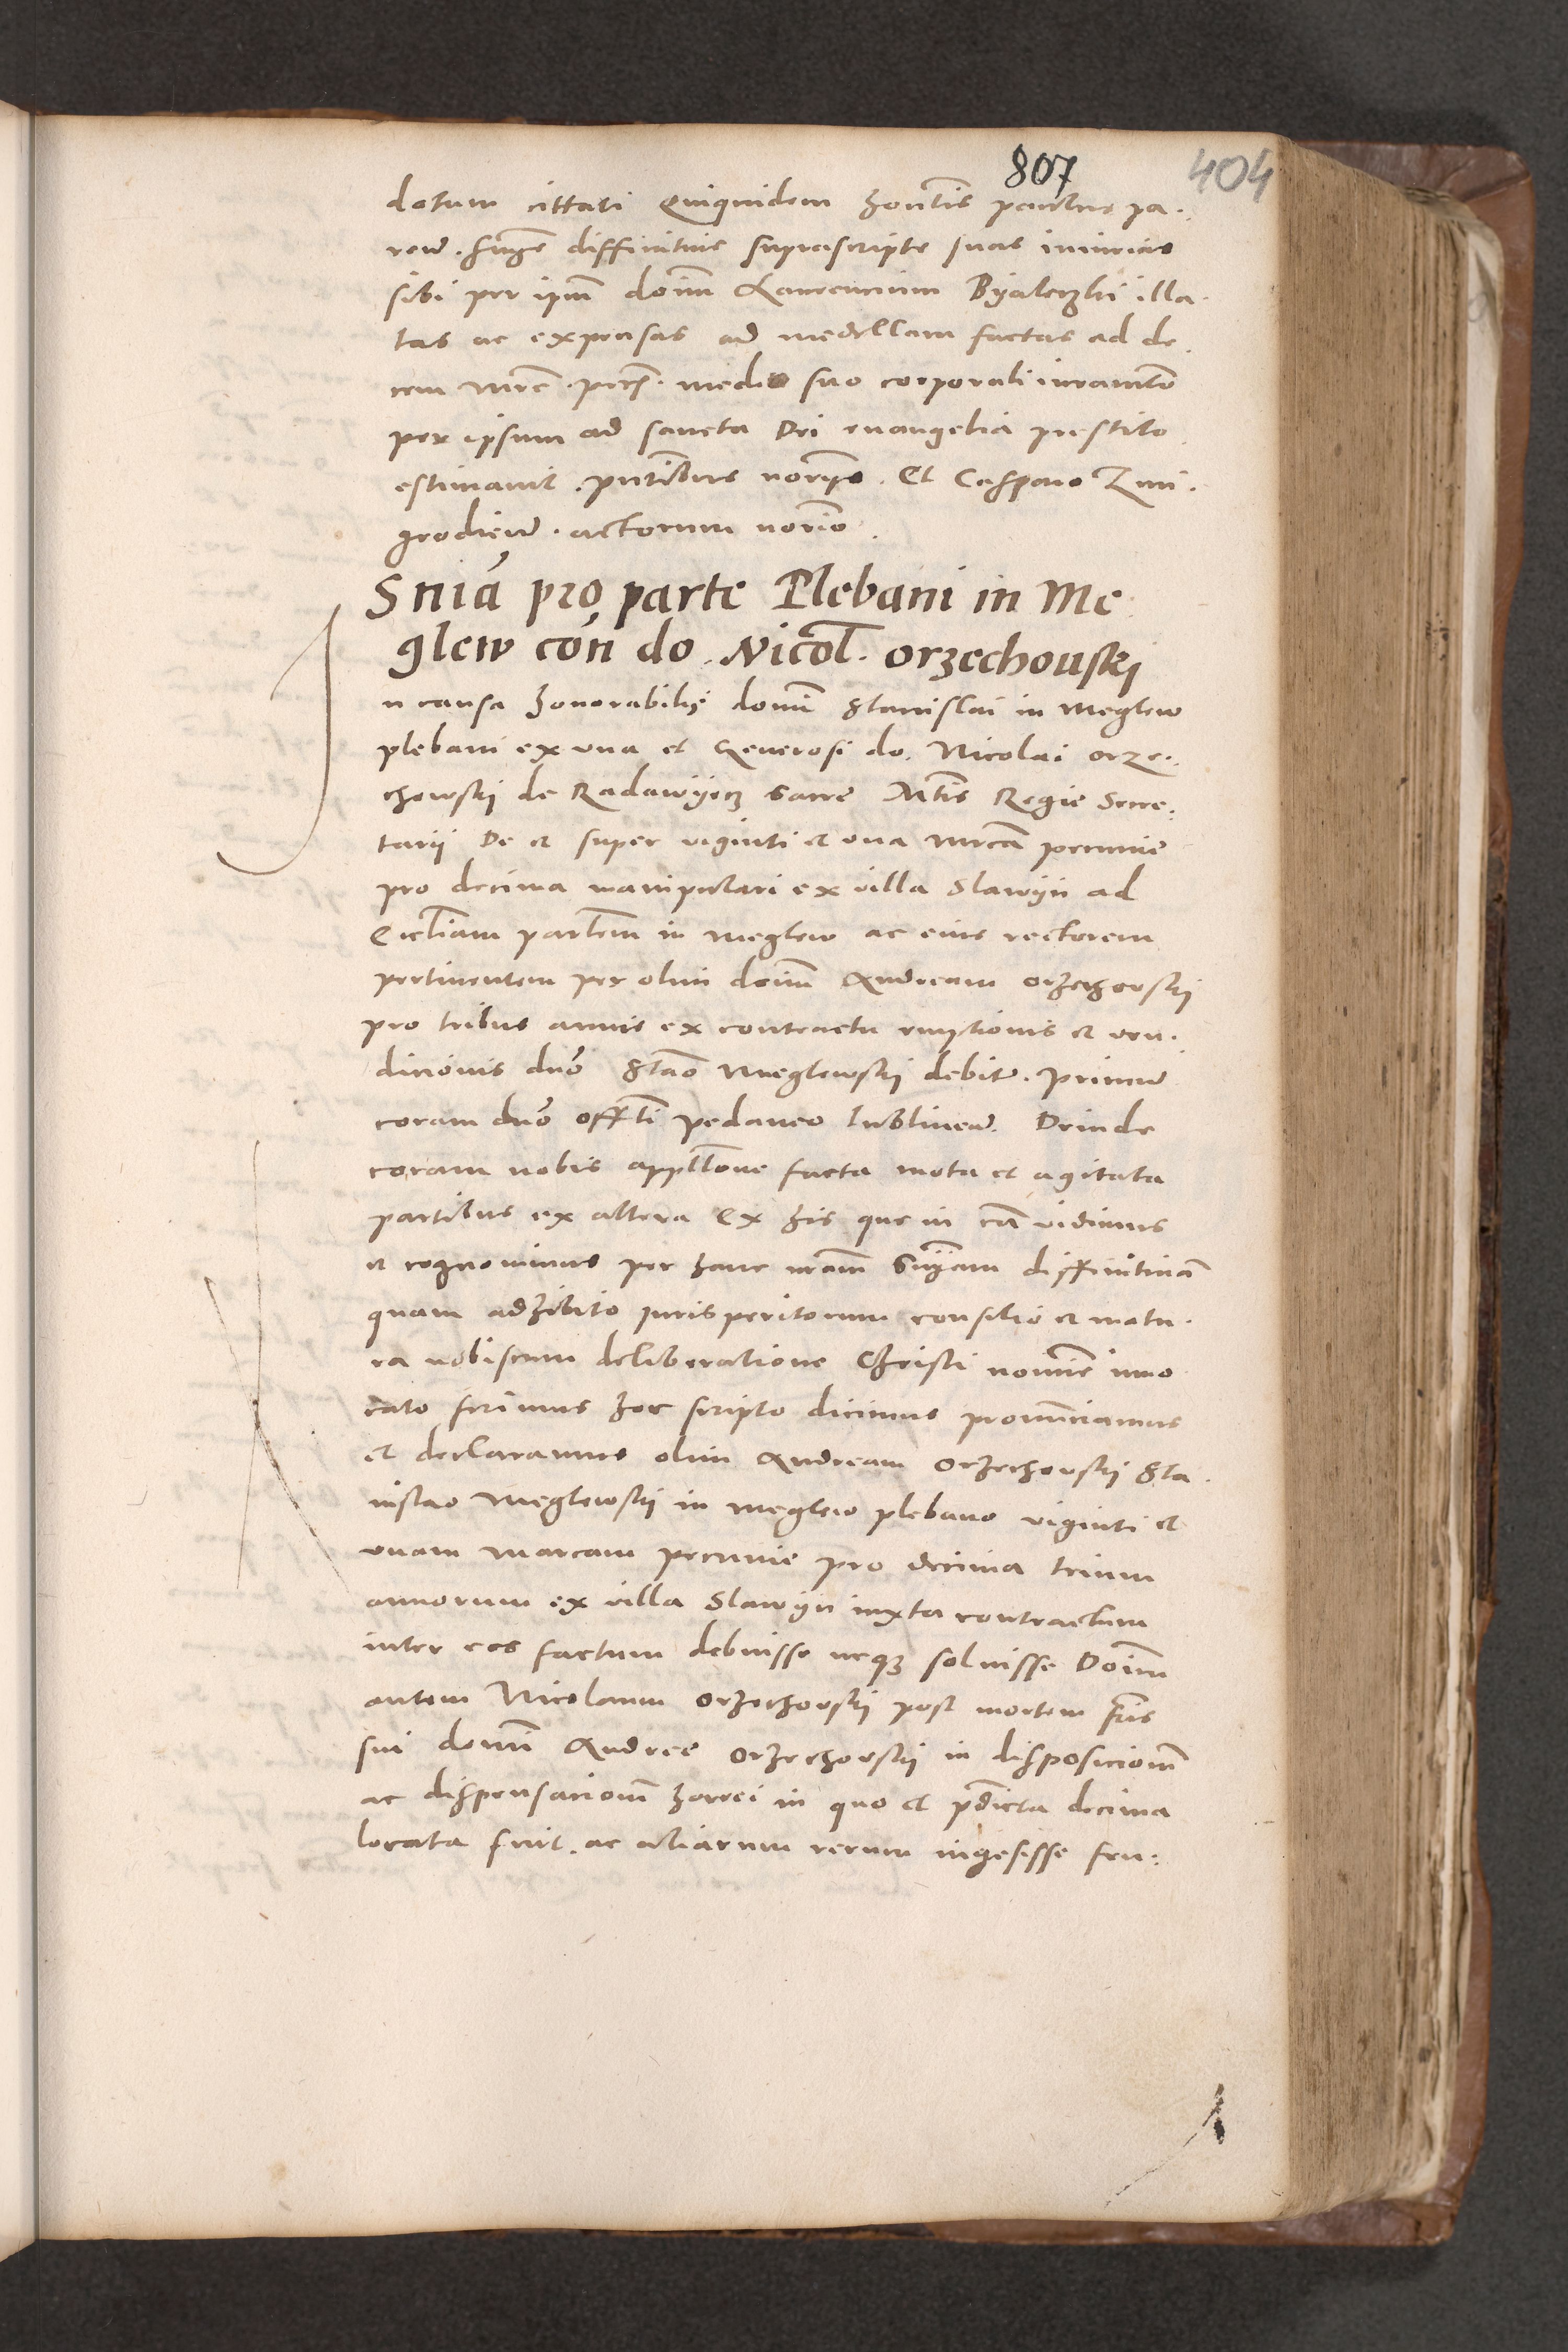 807 404
datum cittati Quiquidem honrabilis paulus pa.
rem. sungre diffinitiue suprascripte suas iniurias
sibi per ipm doim Laurencium Byaleczki illa.
tas ac expensas ad medellam factas ad de
cem mrc. pecs. medio suo corporali iuramto
per ipsum ad sancta Dei euangelia prestito
estimauit. pntibus noryis. Et Casparo Zmi.
grodien. actorum norio.
Snia pro parte Plebani in Me
glew con do. Nicol. orzechouski
In causa honorabilis domi Stanislai in Meglew
plebani ex vna et Generosi do. Nicolai orze.
chowskj de Radawyecz Sacre Mtis Regie Secre:
tarij De et super viginti et vna mrca pecunie
pro decima manipulari ex villa Slawyn ad
Ecctiam partem in meglew ac eius rectorem
pertinentem per olim doim Andream orzechouskj
pro tribus annis ex contractu emptionis et ven.
dicionis dno Stao Meglewskj debit. primum
coram dno offtli pedaneo lublinen. Deinde
coram nobis appllone facta mota et agitata
partibus ex altera Ex his que in ca vidimus
et cognouimus per hanc nram Sniam diffinitiua
quam adhibito Jurisperitorum consilio et matu.
ra nobiscum deliberatione Christi nomine inuo
cato ferimus hoc scripto dicimus pronunciamus
et declaramus olim Andream orzechouskj Sta.
nislao Meglewskj in meglew plebano viginti et
vnam marcam pecunie pro decima trium
annorum ex villa Slawyn iuxta contractum
inter eos factum debuisse neqz soluisse Doim
autem Nicolaum orzechouskj post mortem fris
sui domi Andree orzechouskj in disposicionem
ac dispensacionem horrei in quo et pdicta decima
locata fuit. ac aliarum rerum ingesisse seu: